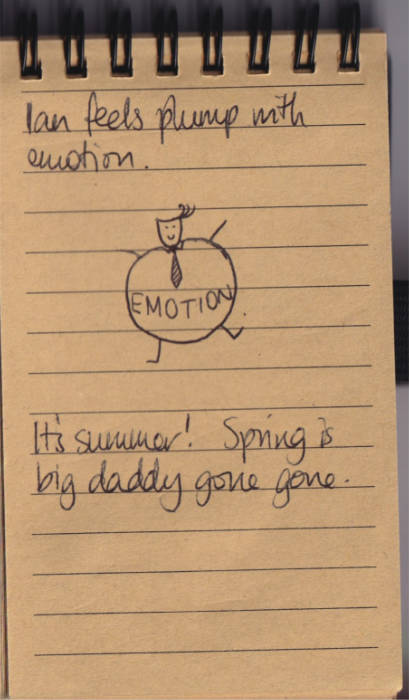 Ian feels plump with
emotion.
EMOTION
It's summer! Spring is
big daddy gone gone.